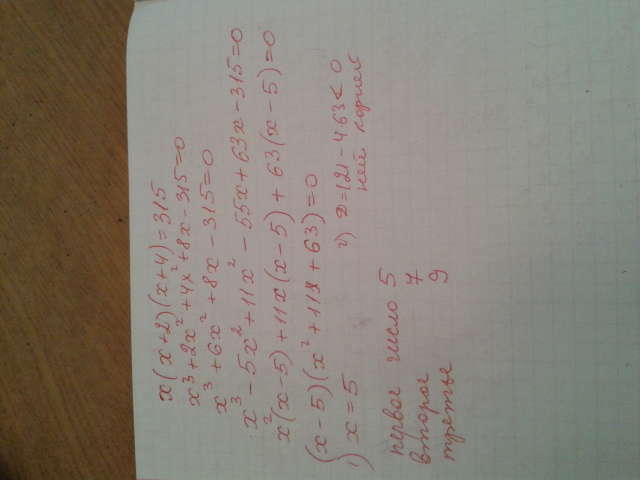 x(x+2)(x+4)=315
x³+2x²+4x²+8x-315=0
x³+6x²+8x-315=0
x³-5x²+11x²-55x+63x-315=0
x²(x-5)+11x(x-5)+63(x-5)=0
(x-5)(x²+11x+63)=0
1) x=5 2) D=121-4·63<0
нет корней
первое число 5
второе 7
третье 9